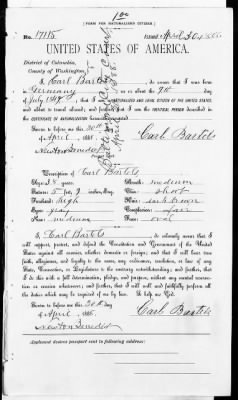 1 00
[FORM FOR NATURALIZED CITIZEN.]
No. 17115
Issued April 30 1886
UNITED STATES OF AMERICA.
District of Columbia,
County of Washington,
I Carl Bartels, do swear that I was born
in Germany on or about the 9th day
of July 1847, that I am a NATURALIZED AND LOYAL CITIZEN OF THE UNITED STATES
and about to travel abroad; and further that I am the IDENTICAL PERSON described
in the CERTIFICATE OF NATURALIZATION
Sworn to before me this 30th
of April, 1886.
Newton Benedict
Carl Bartels
Description of Carl Bartels
Age: 38 years Mouth: medium
Stature: 5 feet, 9 inches, Eng. Chin: short
Forehead: high Hair: dark brown
Eyes: gray Complexion: fair
Nose: medium Face: oval
I, Carl Bartels, do solemnly swear that I will
support, protect, and defend the Constitution and Government of the United
States against all enemies, whether domestic or foreign; and that I will bear true
faith, allegiance, and loyalty to the same, any ordinance, resolution, or law of any
State, Convention, or Legislature to the contrary notwithstanding; and further, that
I do this with a full determination, pledge, and purpose, without any mental reservation
or evasion whatsoever; and further, that I will well and faithfully perform all
the duties which may be required of me by law. So help me God.
Sworn to before me this 30th day
of April, 1886.
Newton Benedict
Carl Bartels
Applicant desires passport sent to following address: